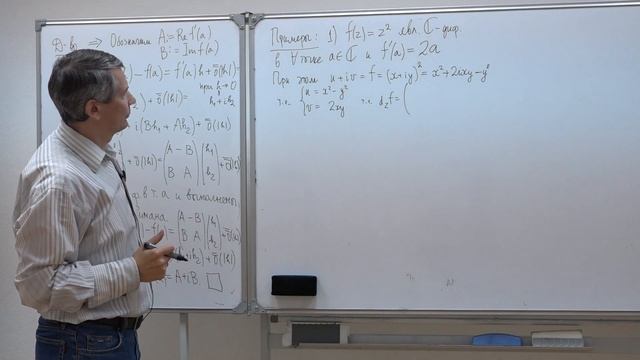 ⇒ Обозначим A := Re f'(a)
B := Im f'(a)
- f(a) = f'(a) h + ō(|h|)
при h → 0
h₁ + ih₂
) + ō(|h|)
i(Bh₁ + Ah₂) + ō(|h|)
) + ō(|h|) = (A -B / B A) (h₁ / h₂) + ō(|h|)
ф. в т. a и выполнены
имана.
= (A -B / B A) (h₁ / h₂) + ō(|h|)
= A + iB. □
Примеры: 1) f(z) = z² явл. ℂ-диф.
в ∀ точке a ∈ ℂ и f'(a) = 2a
При этом u + iv = f = (x + iy)² = x² + 2ixy - y²
т.е. { u = x² - y²
v = 2xy т.е. d_z f = (